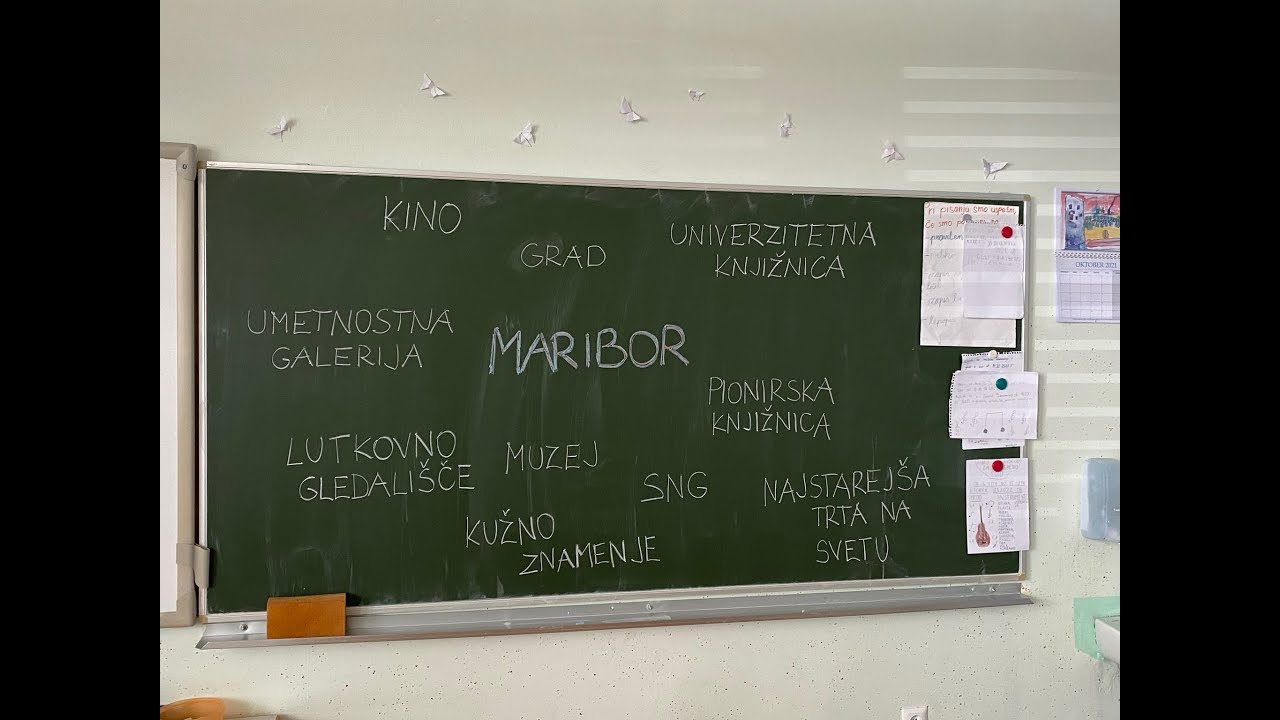 KINO
GRAD
UNIVERZITETNA
KNJIŽNICA
UMETNOSTNA
GALERIJA
MARIBOR
PIONIRSKA
KNJIŽNICA
LUTKOVNO
GLEDALIŠČE
MUZEJ
SNG
NAJSTAREJŠA
TRTA NA
SVETU
KUŽNO
ZNAMENJE
pisanju smo uspešni,
smo
OKTOBER 2021